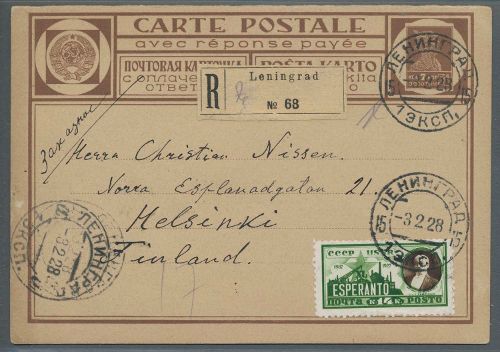 CARTE POSTALE
avec réponse payée
ПОЧТОВАЯ КАРТОЧКА POŜTA KARTO
R Leningrad
№ 68
Заказное
Herra Christian Nissen.
Norra Esplanadgatan 21.
Helsinki
Finland.
ЛЕНИНГРАД
1 ЭКСП.
ЛЕНИНГРАД
-3.2.28
ЛЕНИНГРАД
-3.2.28
СССР
ESPERANTO
ПОЧТА К.14К. POŜTO